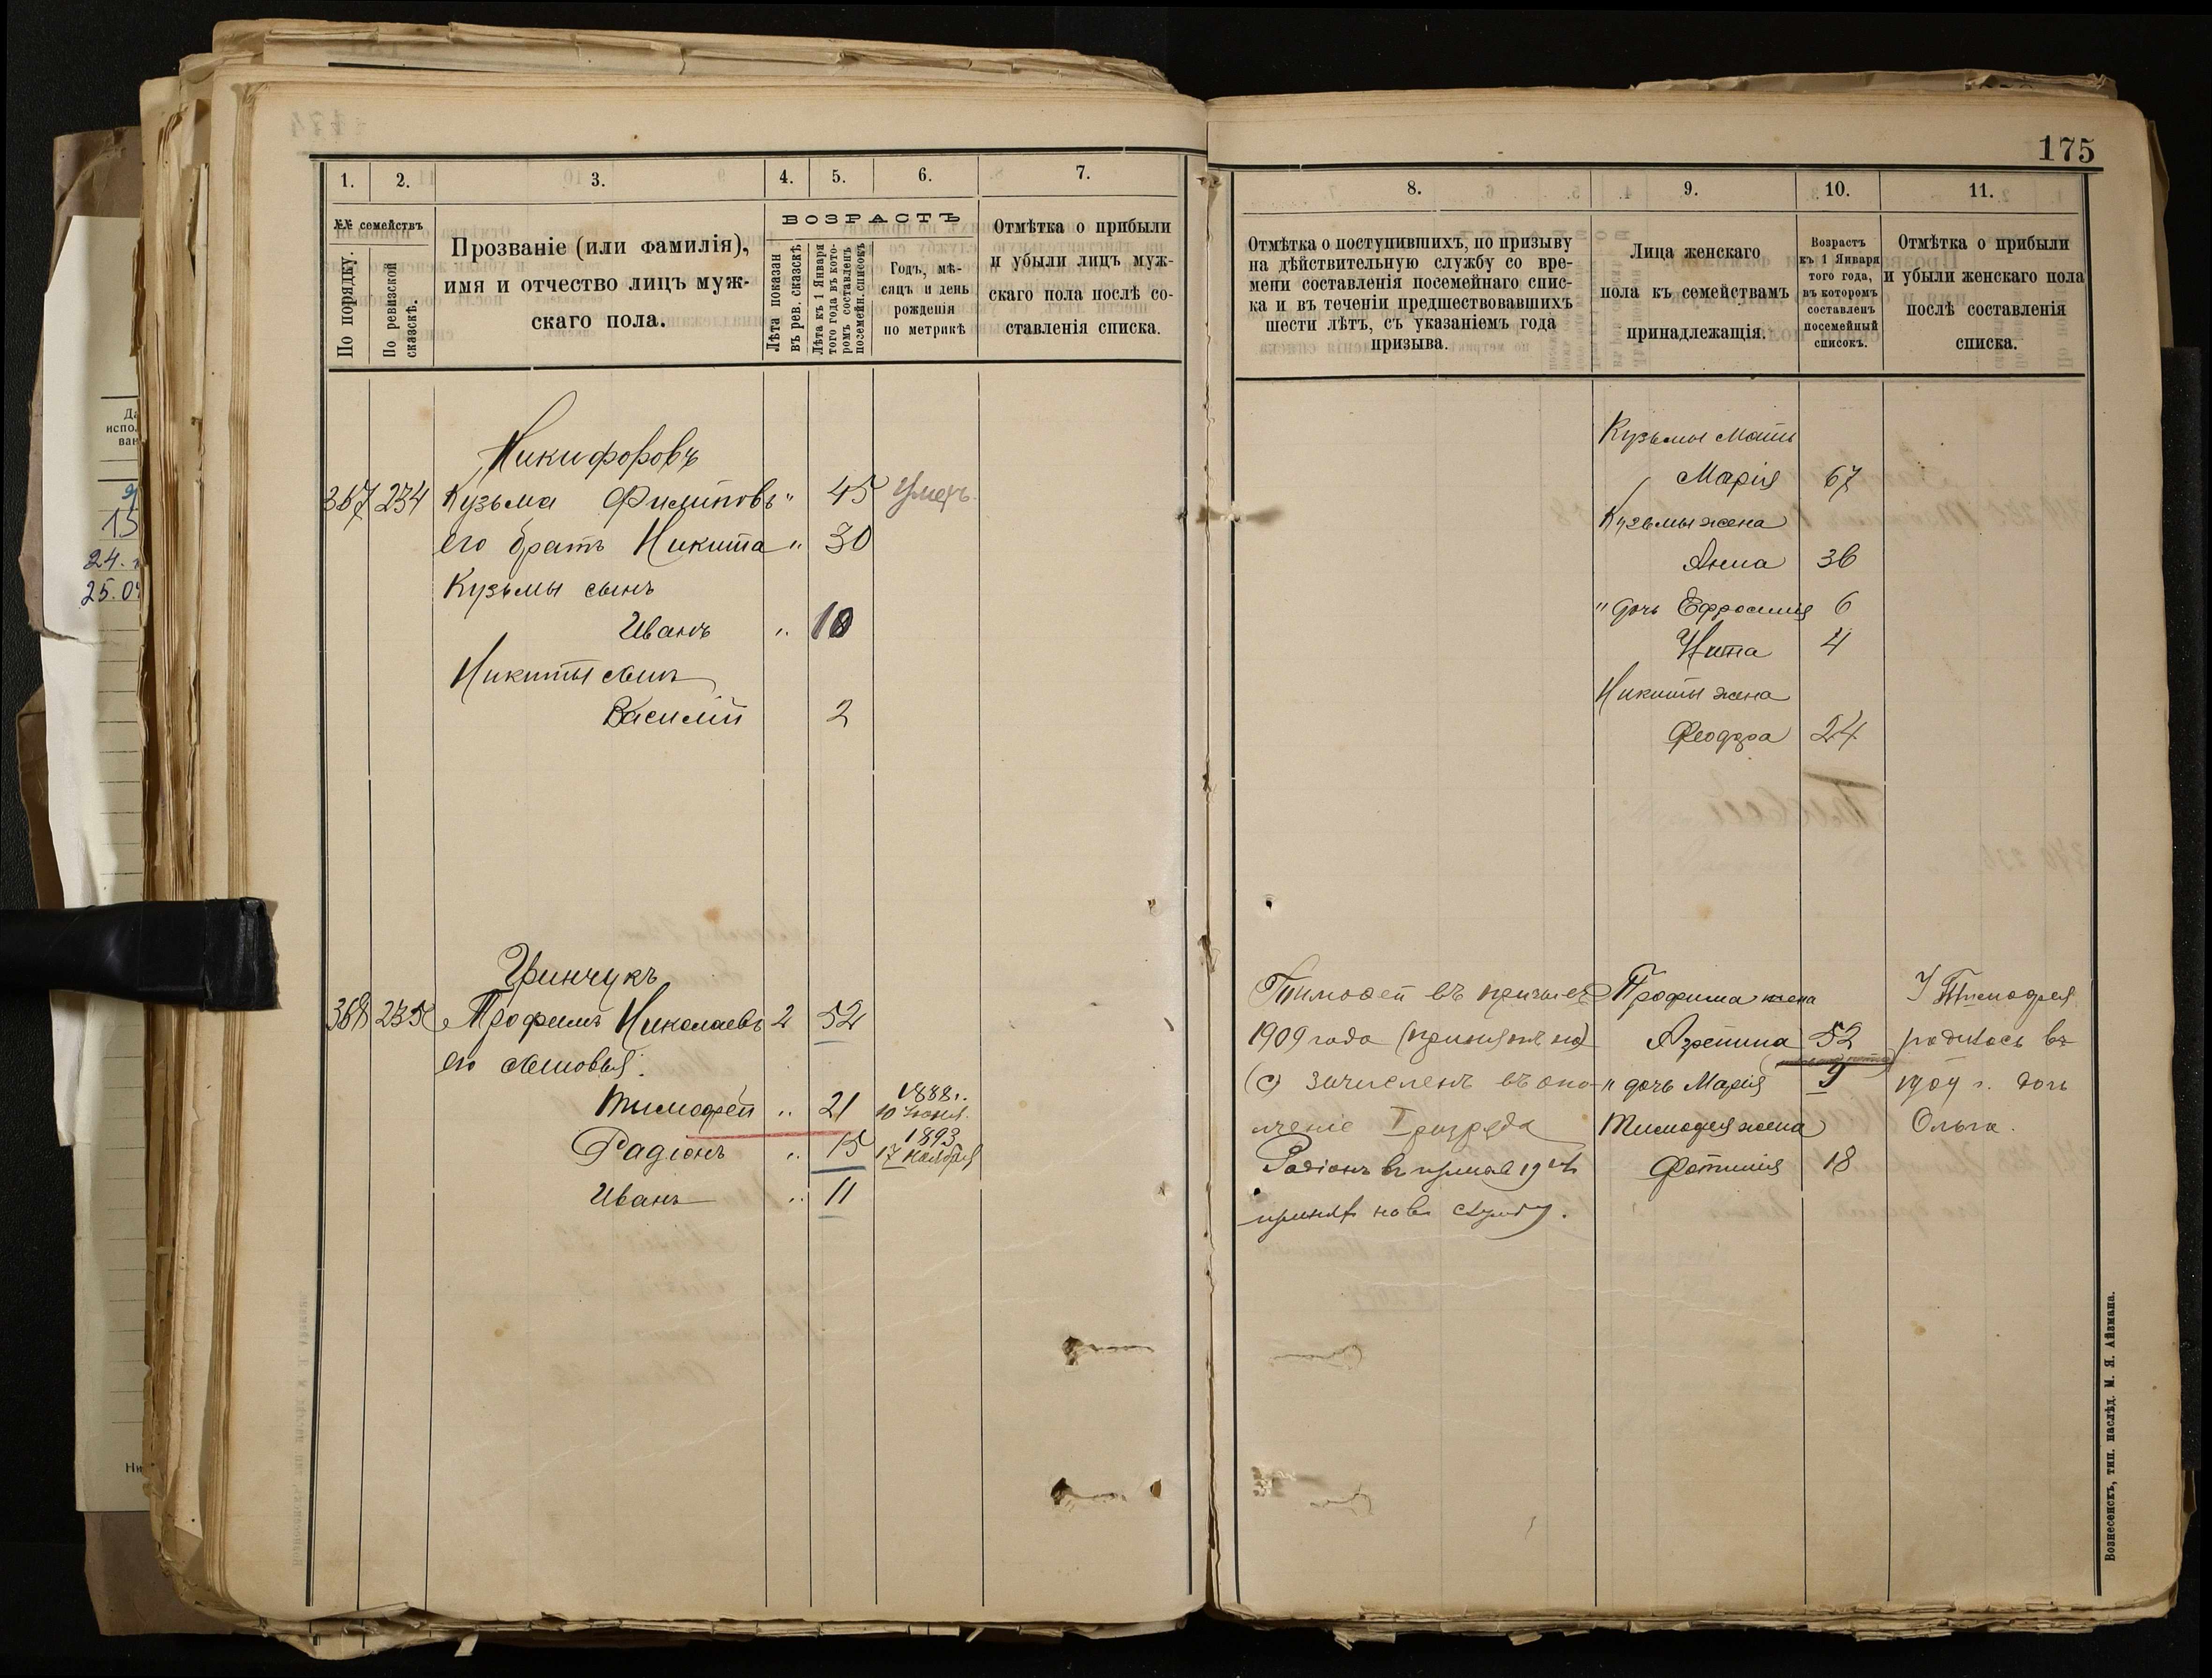 175
1.
2.
3.
4.
5.
6.
7.
№№ семействъ
По порядку.
По ревизской сказскѣ.
Прозваніе (или фамилія),
имя и отчество лицъ муж-
скаго пола.
ВОЗРАСТЪ
Лѣта показан
въ рев. сказскѣ
Лѣта къ 1 Января
того года въ кото-
ромъ составленъ
посемейн. списокъ
Годъ, мѣ-
сяцъ и день
рожденія
по метрикѣ
Отмѣтка о прибыли
и убыли лицъ муж-
скаго пола послѣ со-
ставленія списка.
Никифоровъ
367 234 Кузьма Филиповъ " 45 умеръ
его братъ Никита " 30
Кузьмы сынъ
Иванъ " 10
Никиты сынъ
Василій 2
Гринчукъ
368 235 Трофимъ Николаевъ 2 52
его сыновья:
Тимофей " 21 1888 г.
10 Іюня
Радіонъ " 15 1893
17 Ноября
Иванъ " 11
8.
9.
10.
11.
Отмѣтка о поступившихъ, по призыву
на дѣйствительную службу со вре-
мени составленія посемейнаго спис-
ка и въ теченіи предшествовавшихъ
шести лѣтъ, съ указаніемъ года
призыва.
Лица женскаго
пола къ семействамъ
принадлежащія.
Возрастъ
къ 1 Января
того года,
въ которомъ
составленъ
посемейный
списокъ.
Отмѣтка о прибыли
и убыли женскаго пола
послѣ составленія
списка.
Кузьмы мать
Марія 67
Кузьмы жена
Анна 36
" дочь Ефросинія 6
4
Никиты жена
Феодора 24
Тимофей въ призывѣ
1909 года
зачисленъ въ опо-
лченіе I разряда
Радіонъ въ
принят на службу.
Трофима жена
52
" дочь Марія 9
Тимофея жена
Фотинія 18
У Тимофея
родилась въ
1909 г. дочь
Ольга.
Вознесенскъ, тип. наслѣд. М. Я. Айзмана.
Да
испо
ван
15
24.
25.0
Ни